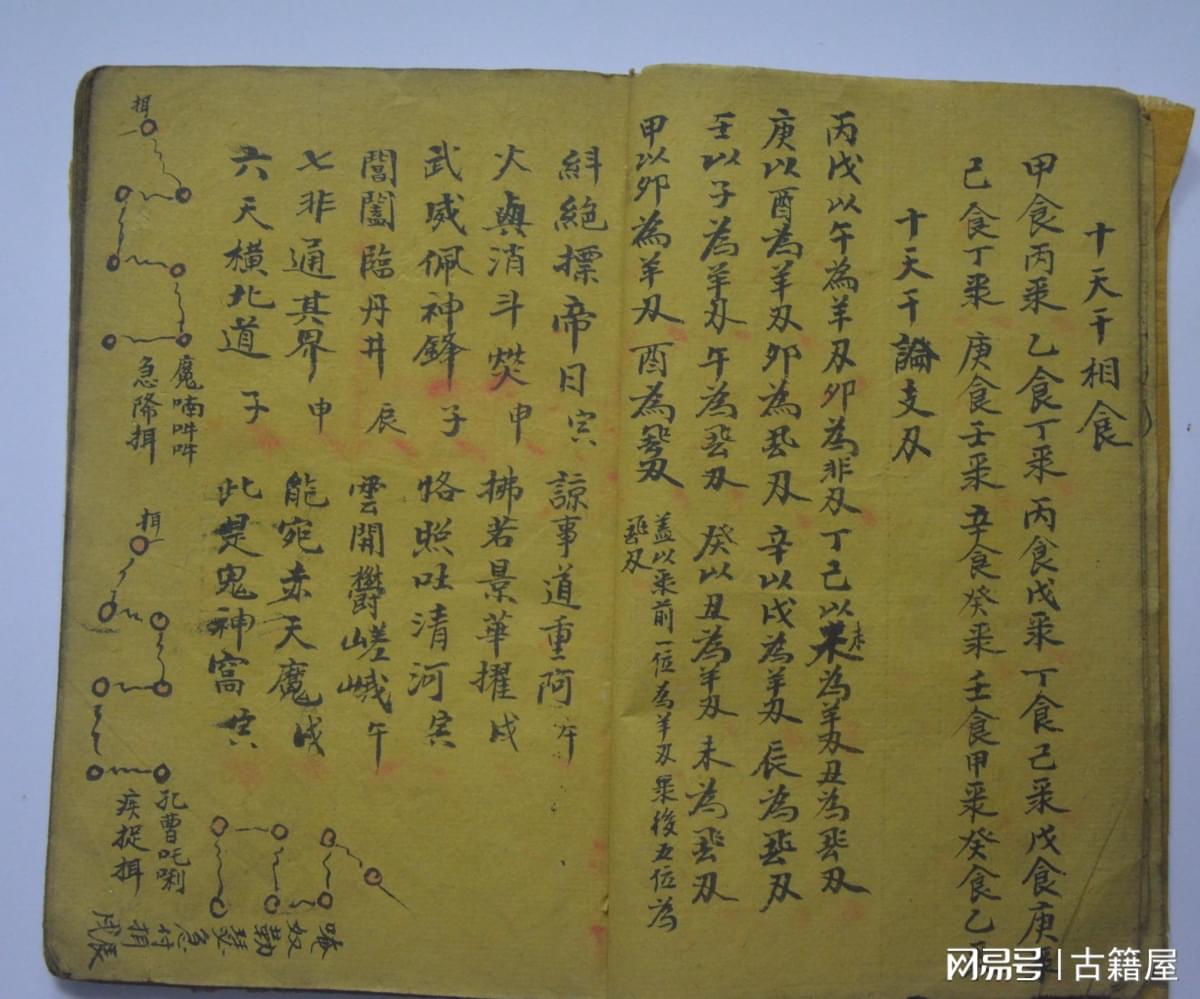 十天干相食
甲食丙禄 乙食丁禄 丙食戊禄 丁食己禄 戊食庚禄
己食丁禄 庚食壬禄 辛食癸禄 壬食甲禄 癸食乙
十天干論支刃
丙戊以午為羊刃 卯為非刃 丁己以未為羊刃 丑為飛刃
庚以酉為羊刃 卯為飛刃 辛以戌為羊刃 辰為飛刃
壬以子為羊刃 午為飛刃 癸以丑為羊刃 未為飛刃
甲以卯為羊刃 酉為飛刃 蓋以禄前一位為羊刃 禄後五位為
飛刃
斜絕標帝日 寅 諒事道重阿 午
火輿消斗燹 申 拂若景華擢 戌
武威佩神鋒 子 恪照吐清河 寅
閶闔臨丹井 辰 雲開欝嵯峨 午
七非通其界 申 能宛赤天魔 戌
六天橫北道 子 此是鬼神窩 寅
揖
魔喃吽吽
急降揖
揖
孔曹吒唎
疾捉揖